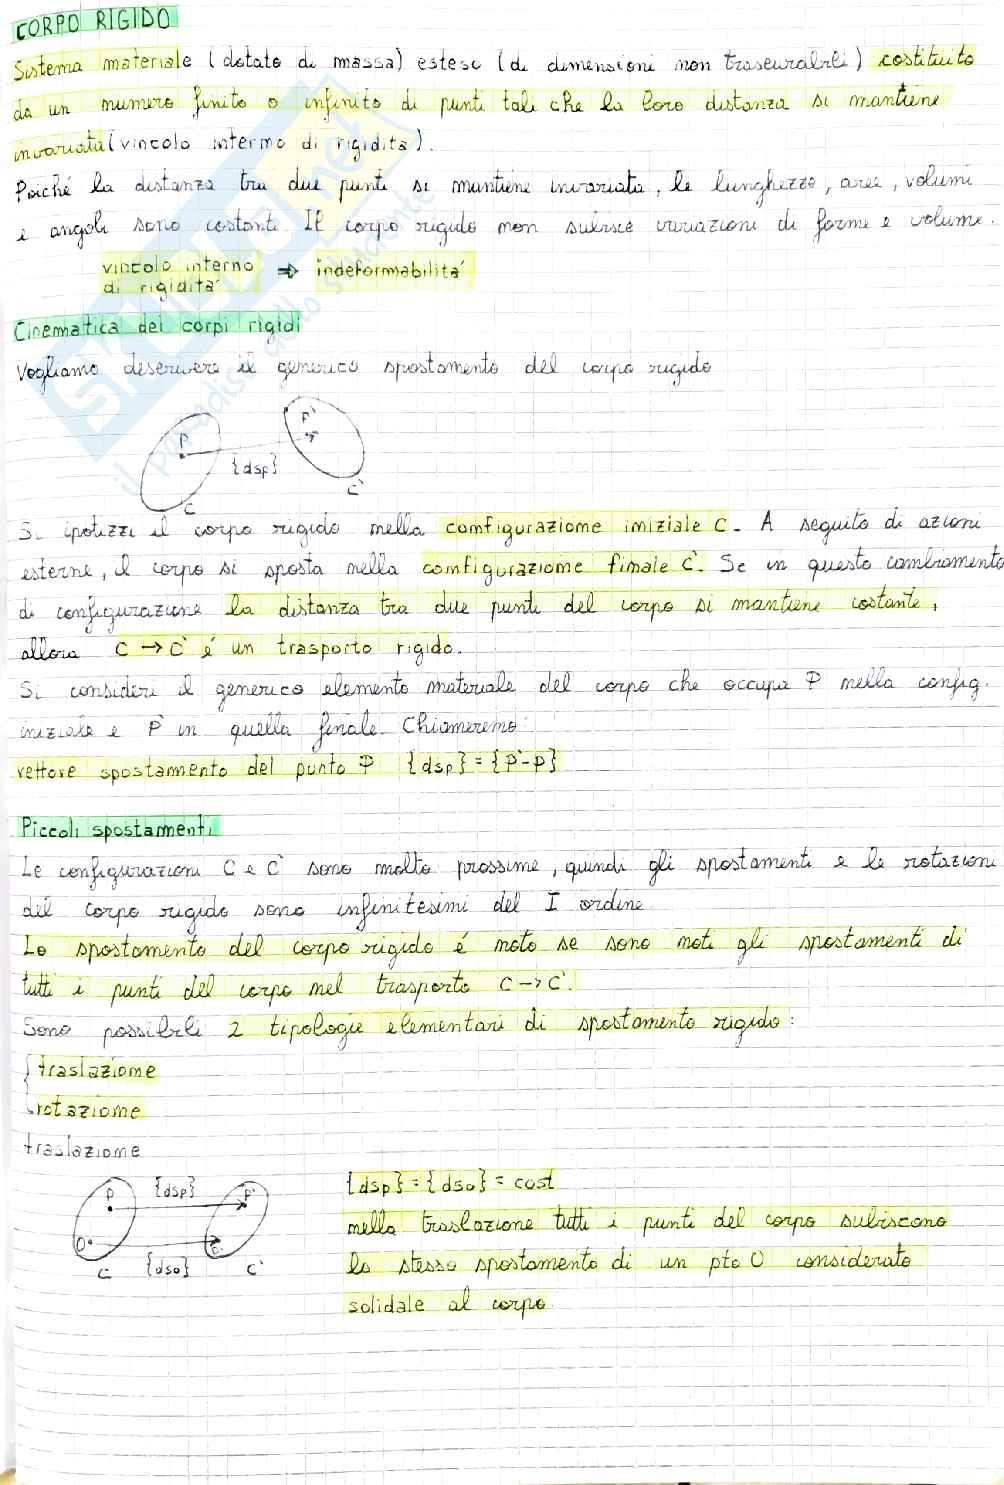 CORPO RIGIDO
Sistema materiale (dotato di massa) esteso (di dimensioni non trascurabili) costituito
da un numero finito o infinito di punti tali che la loro distanza si mantiene
invariata (vincolo interno di rigidità).
Poiché la distanza tra due punti si mantiene invariata, le lunghezze, aree, volumi
e angoli sono costanti. Il corpo rigido non subisce variazioni di forme e volume.
vincolo interno ⇒ indeformabilità
di rigidità
Cinematica dei corpi rigidi
Vogliamo descrivere il generico spostamento del corpo rigido
P P'
{dsp}
C C'
Si ipotizzi il corpo rigido nella configurazione iniziale C. A seguito di azioni
esterne, il corpo si sposta nella configurazione finale C'. Se in questo cambiamento
di configurazione la distanza tra due punti del corpo si mantiene costante,
allora C → C' é un trasporto rigido.
Si consideri il generico elemento materiale del corpo che occupa P nella config.
iniziale e P' in quella finale. Chiameremo:
vettore spostamento del punto P {dsp} = {P'-P}
Piccoli spostamenti
Le configurazioni C e C' sono molto prossime, quindi gli spostamenti e le rotazioni
del corpo rigido sono infinitesimi del I ordine
Lo spostamento del corpo rigido é noto se sono noti gli spostamenti di
tutti i punti del corpo nel trasporto C → C'.
Sono possibili 2 tipologie elementari di spostamento rigido:
traslazione
rotazione
traslazione
P {dsp} P'
O O'
C {dso} C'
{dsp} = {dso} = cost
nella traslazione tutti i punti del corpo subiscono
lo stesso spostamento di un pto O considerato
solidale al corpo
SKUOLA.net
il paradiso dello studente